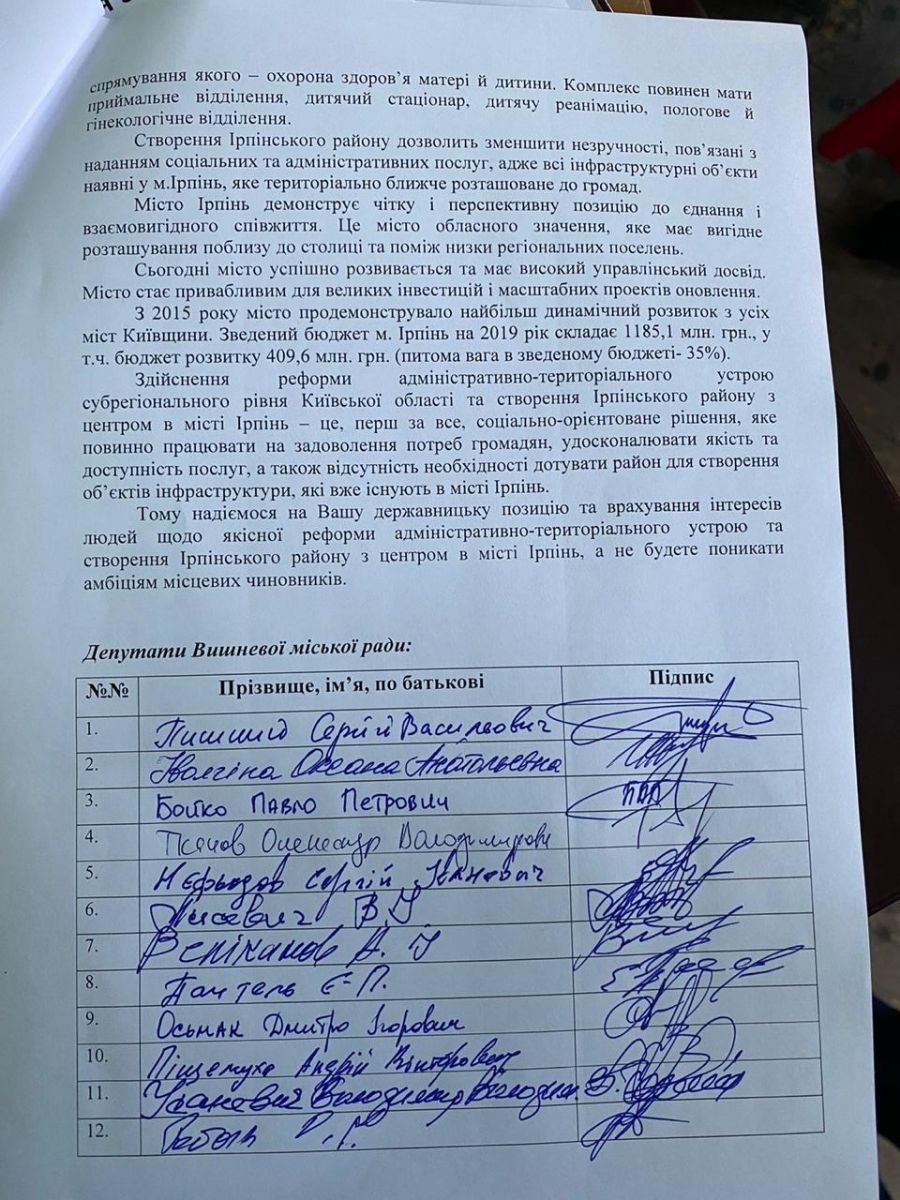 спрямування якого – охорона здоров’я матері й дитини. Комплекс повинен мати
приймальне відділення, дитячий стаціонар, дитячу реанімацію, пологове й
гінекологічне відділення.
Створення Ірпінського району дозволить зменшити незручності, пов’язані з
наданням соціальних та адміністративних послуг, адже всі інфраструктурні об’єкти
наявні у м.Ірпінь, яке територіально ближче розташоване до громад.
Місто Ірпінь демонструє чітку і перспективну позицію до єднання і
взаємовигідного співжиття. Це місто обласного значення, яке має вигідне
розташування поблизу до столиці та поміж низки регіональних поселень.
Сьогодні місто успішно розвивається та має високий управлінський досвід.
Місто стає привабливим для великих інвестицій і масштабних проектів оновлення.
З 2015 року місто продемонструвало найбільш динамічний розвиток з усіх
міст Київщини. Зведений бюджет м. Ірпінь на 2019 рік складає 1185,1 млн. грн., у
т.ч. бюджет розвитку 409,6 млн. грн. (питома вага в зведеному бюджеті- 35%).
Здійснення реформи адміністративно-територіального устрою
субрегіонального рівня Київської області та створення Ірпінського району з
центром в місті Ірпінь – це, перш за все, соціально-орієнтоване рішення, яке
повинно працювати на задоволення потреб громадян, удосконалювати якість та
доступність послуг, а також відсутність необхідності дотувати район для створення
об’єктів інфраструктури, які вже існують в місті Ірпінь.
Тому надіємося на Вашу державницьку позицію та врахування інтересів
людей щодо якісної реформи адміністративно-територіального устрою та
створення Ірпінського району з центром в місті Ірпінь, а не будете поникати
амбіціям місцевих чиновників.
Депутати Вишневої міської ради:
№№ Прізвище, ім’я, по батькові Підпис
1. Сергій Васильович
2. Оксана Анатольевна
3. Бойко Павло Петрович
4. Олександр Володимирович
5. Сергій Іванович
6. Лисевич В
7. Веліканов А.
8. Пантель Є.П.
9. Осьмак Дмитро Ігорович
10. Андрій Вікторович
11. Володимир
12.